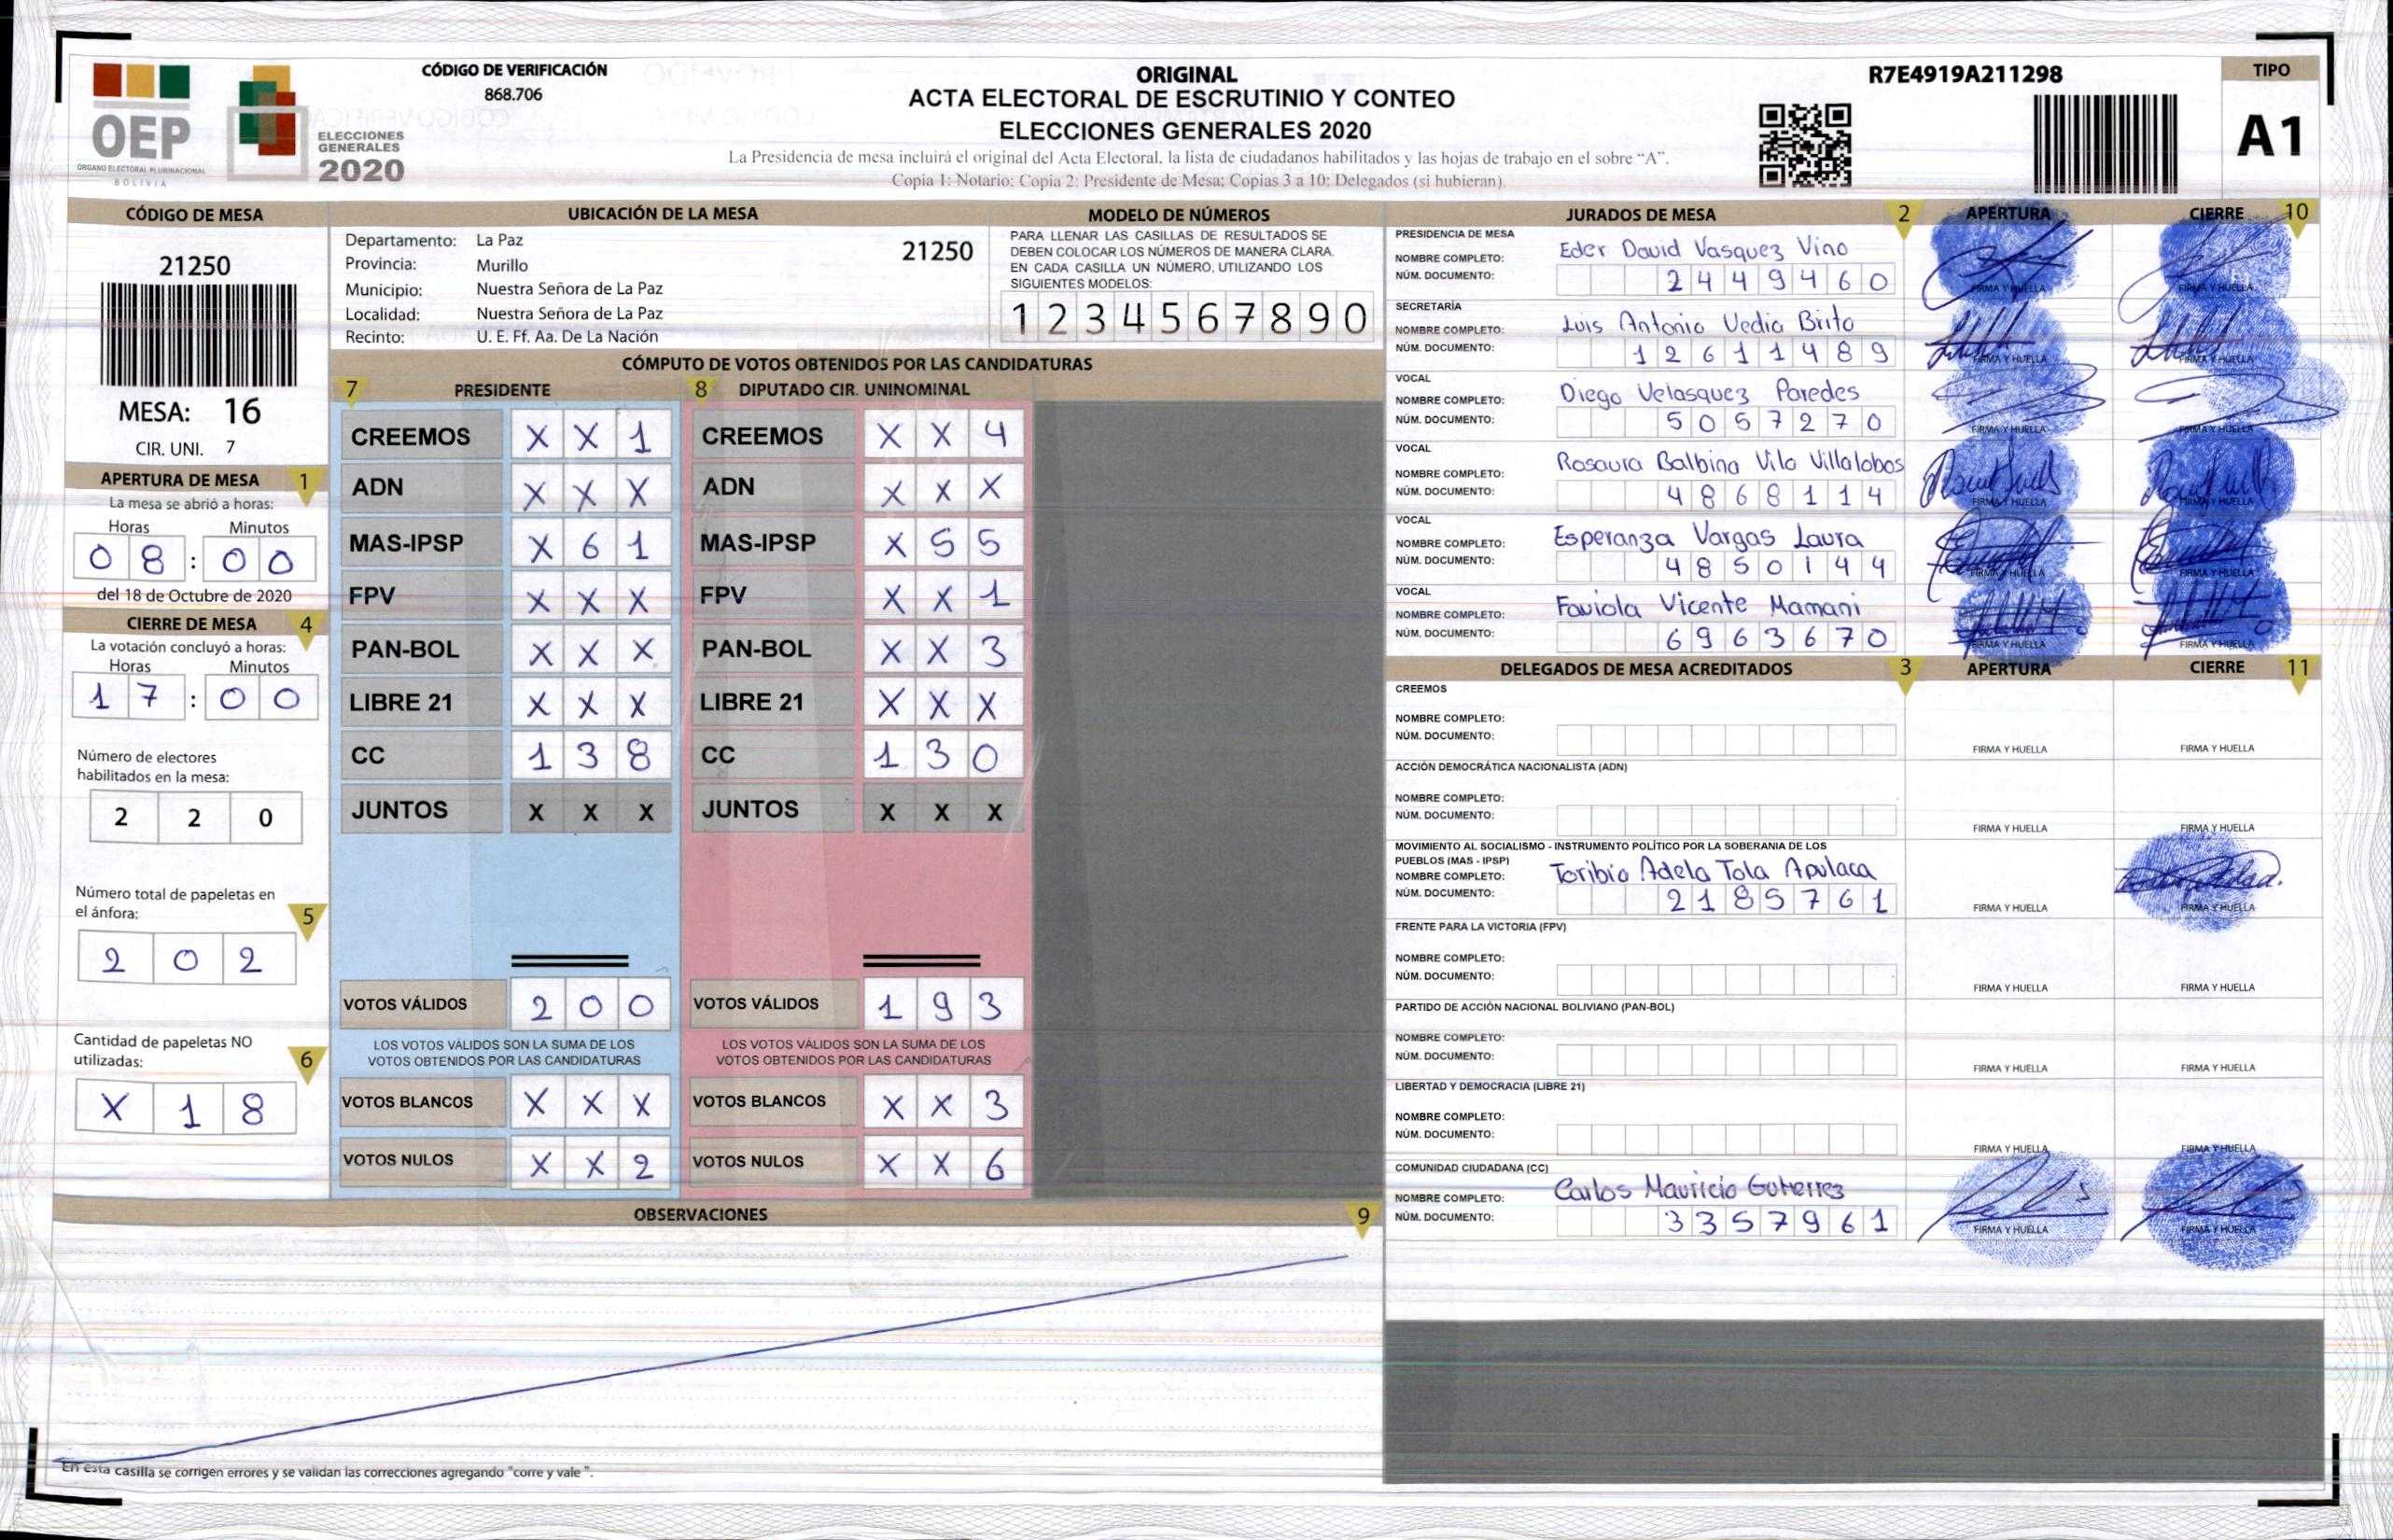 OEP
ÓRGANO ELECTORAL PLURINACIONAL
BOLIVIA
ELECCIONES
GENERALES
2020
CÓDIGO DE VERIFICACIÓN
868.706
ORIGINAL
ACTA ELECTORAL DE ESCRUTINIO Y CONTEO
ELECCIONES GENERALES 2020
La Presidencia de mesa incluirá el original del Acta Electoral, la lista de ciudadanos habilitados y las hojas de trabajo en el sobre “A”.
Copia 1: Notario; Copia 2: Presidente de Mesa; Copias 3 a 10: Delegados (si hubieran).
R7E4919A211298
TIPO
A1
CÓDIGO DE MESA
21250
MESA: 16
CIR. UNI. 7
APERTURA DE MESA 1
La mesa se abrió a horas:
Horas Minutos
08:00
del 18 de Octubre de 2020
CIERRE DE MESA 4
La votación concluyó a horas:
Horas Minutos
17:00
Número de electores
habilitados en la mesa:
2 2 0
Número total de papeletas en
el ánfora: 5
2 0 2
Cantidad de papeletas NO
utilizadas: 6
X 1 8
UBICACIÓN DE LA MESA
Departamento: La Paz 21250
Provincia: Murillo
Municipio: Nuestra Señora de La Paz
Localidad: Nuestra Señora de La Paz
Recinto: U. E. Ff. Aa. De La Nación
MODELO DE NÚMEROS
PARA LLENAR LAS CASILLAS DE RESULTADOS SE
DEBEN COLOCAR LOS NÚMEROS DE MANERA CLARA.
EN CADA CASILLA UN NÚMERO, UTILIZANDO LOS
SIGUIENTES MODELOS:
1 2 3 4 5 6 7 8 9 0
CÓMPUTO DE VOTOS OBTENIDOS POR LAS CANDIDATURAS
7 PRESIDENTE
CREEMOS X X 1
ADN X X X
MAS-IPSP X 6 1
FPV X X X
PAN-BOL X X X
LIBRE 21 X X X
CC 1 3 8
JUNTOS X X X
VOTOS VÁLIDOS 2 0 0
LOS VOTOS VÁLIDOS SON LA SUMA DE LOS
VOTOS OBTENIDOS POR LAS CANDIDATURAS
VOTOS BLANCOS X X X
VOTOS NULOS X X 2
8 DIPUTADO CIR. UNINOMINAL
CREEMOS X X 4
ADN X X X
MAS-IPSP X 5 5
FPV X X 1
PAN-BOL X X 3
LIBRE 21 X X X
CC 1 3 0
JUNTOS X X X
VOTOS VÁLIDOS 1 9 3
LOS VOTOS VÁLIDOS SON LA SUMA DE LOS
VOTOS OBTENIDOS POR LAS CANDIDATURAS
VOTOS BLANCOS X X 3
VOTOS NULOS X X 6
OBSERVACIONES 9
En esta casilla se corrigen errores y se validan las correcciones agregando "corre y vale".
JURADOS DE MESA 2 APERTURA CIERRE 10
PRESIDENCIA DE MESA
NOMBRE COMPLETO: Eder David Vasquez Vino
NÚM. DOCUMENTO: 2449460
FIRMA Y HUELLA FIRMA Y HUELLA
SECRETARÍA
NOMBRE COMPLETO: Luis Antonio Vedia Brito
NÚM. DOCUMENTO: 12611489
FIRMA Y HUELLA FIRMA Y HUELLA
VOCAL
NOMBRE COMPLETO: Diego Velasquez Paredes
NÚM. DOCUMENTO: 5057270
FIRMA Y HUELLA FIRMA Y HUELLA
VOCAL
NOMBRE COMPLETO: Rosaura Balbina Vila Villalobos
NÚM. DOCUMENTO: 4868114
FIRMA Y HUELLA FIRMA Y HUELLA
VOCAL
NOMBRE COMPLETO: Esperanza Vargas Laura
NÚM. DOCUMENTO: 4850144
FIRMA Y HUELLA FIRMA Y HUELLA
VOCAL
NOMBRE COMPLETO: Faviola Vicente Mamani
NÚM. DOCUMENTO: 6963670
FIRMA Y HUELLA FIRMA Y HUELLA
DELEGADOS DE MESA ACREDITADOS 3 APERTURA CIERRE 11
CREEMOS
NOMBRE COMPLETO:
NÚM. DOCUMENTO:
FIRMA Y HUELLA FIRMA Y HUELLA
ACCIÓN DEMOCRÁTICA NACIONALISTA (ADN)
NOMBRE COMPLETO:
NÚM. DOCUMENTO:
FIRMA Y HUELLA FIRMA Y HUELLA
MOVIMIENTO AL SOCIALISMO - INSTRUMENTO POLÍTICO POR LA SOBERANIA DE LOS
PUEBLOS (MAS - IPSP)
NOMBRE COMPLETO: Toribia Adela Tola Apulaca
NÚM. DOCUMENTO: 2185761
FIRMA Y HUELLA FIRMA Y HUELLA
FRENTE PARA LA VICTORIA (FPV)
NOMBRE COMPLETO:
NÚM. DOCUMENTO:
FIRMA Y HUELLA FIRMA Y HUELLA
PARTIDO DE ACCIÓN NACIONAL BOLIVIANO (PAN-BOL)
NOMBRE COMPLETO:
NÚM. DOCUMENTO:
FIRMA Y HUELLA FIRMA Y HUELLA
LIBERTAD Y DEMOCRACIA (LIBRE 21)
NOMBRE COMPLETO:
NÚM. DOCUMENTO:
FIRMA Y HUELLA FIRMA Y HUELLA
COMUNIDAD CIUDADANA (CC)
NOMBRE COMPLETO: Carlos Mauricio Gutierrez
NÚM. DOCUMENTO: 3357961
FIRMA Y HUELLA FIRMA Y HUELLA